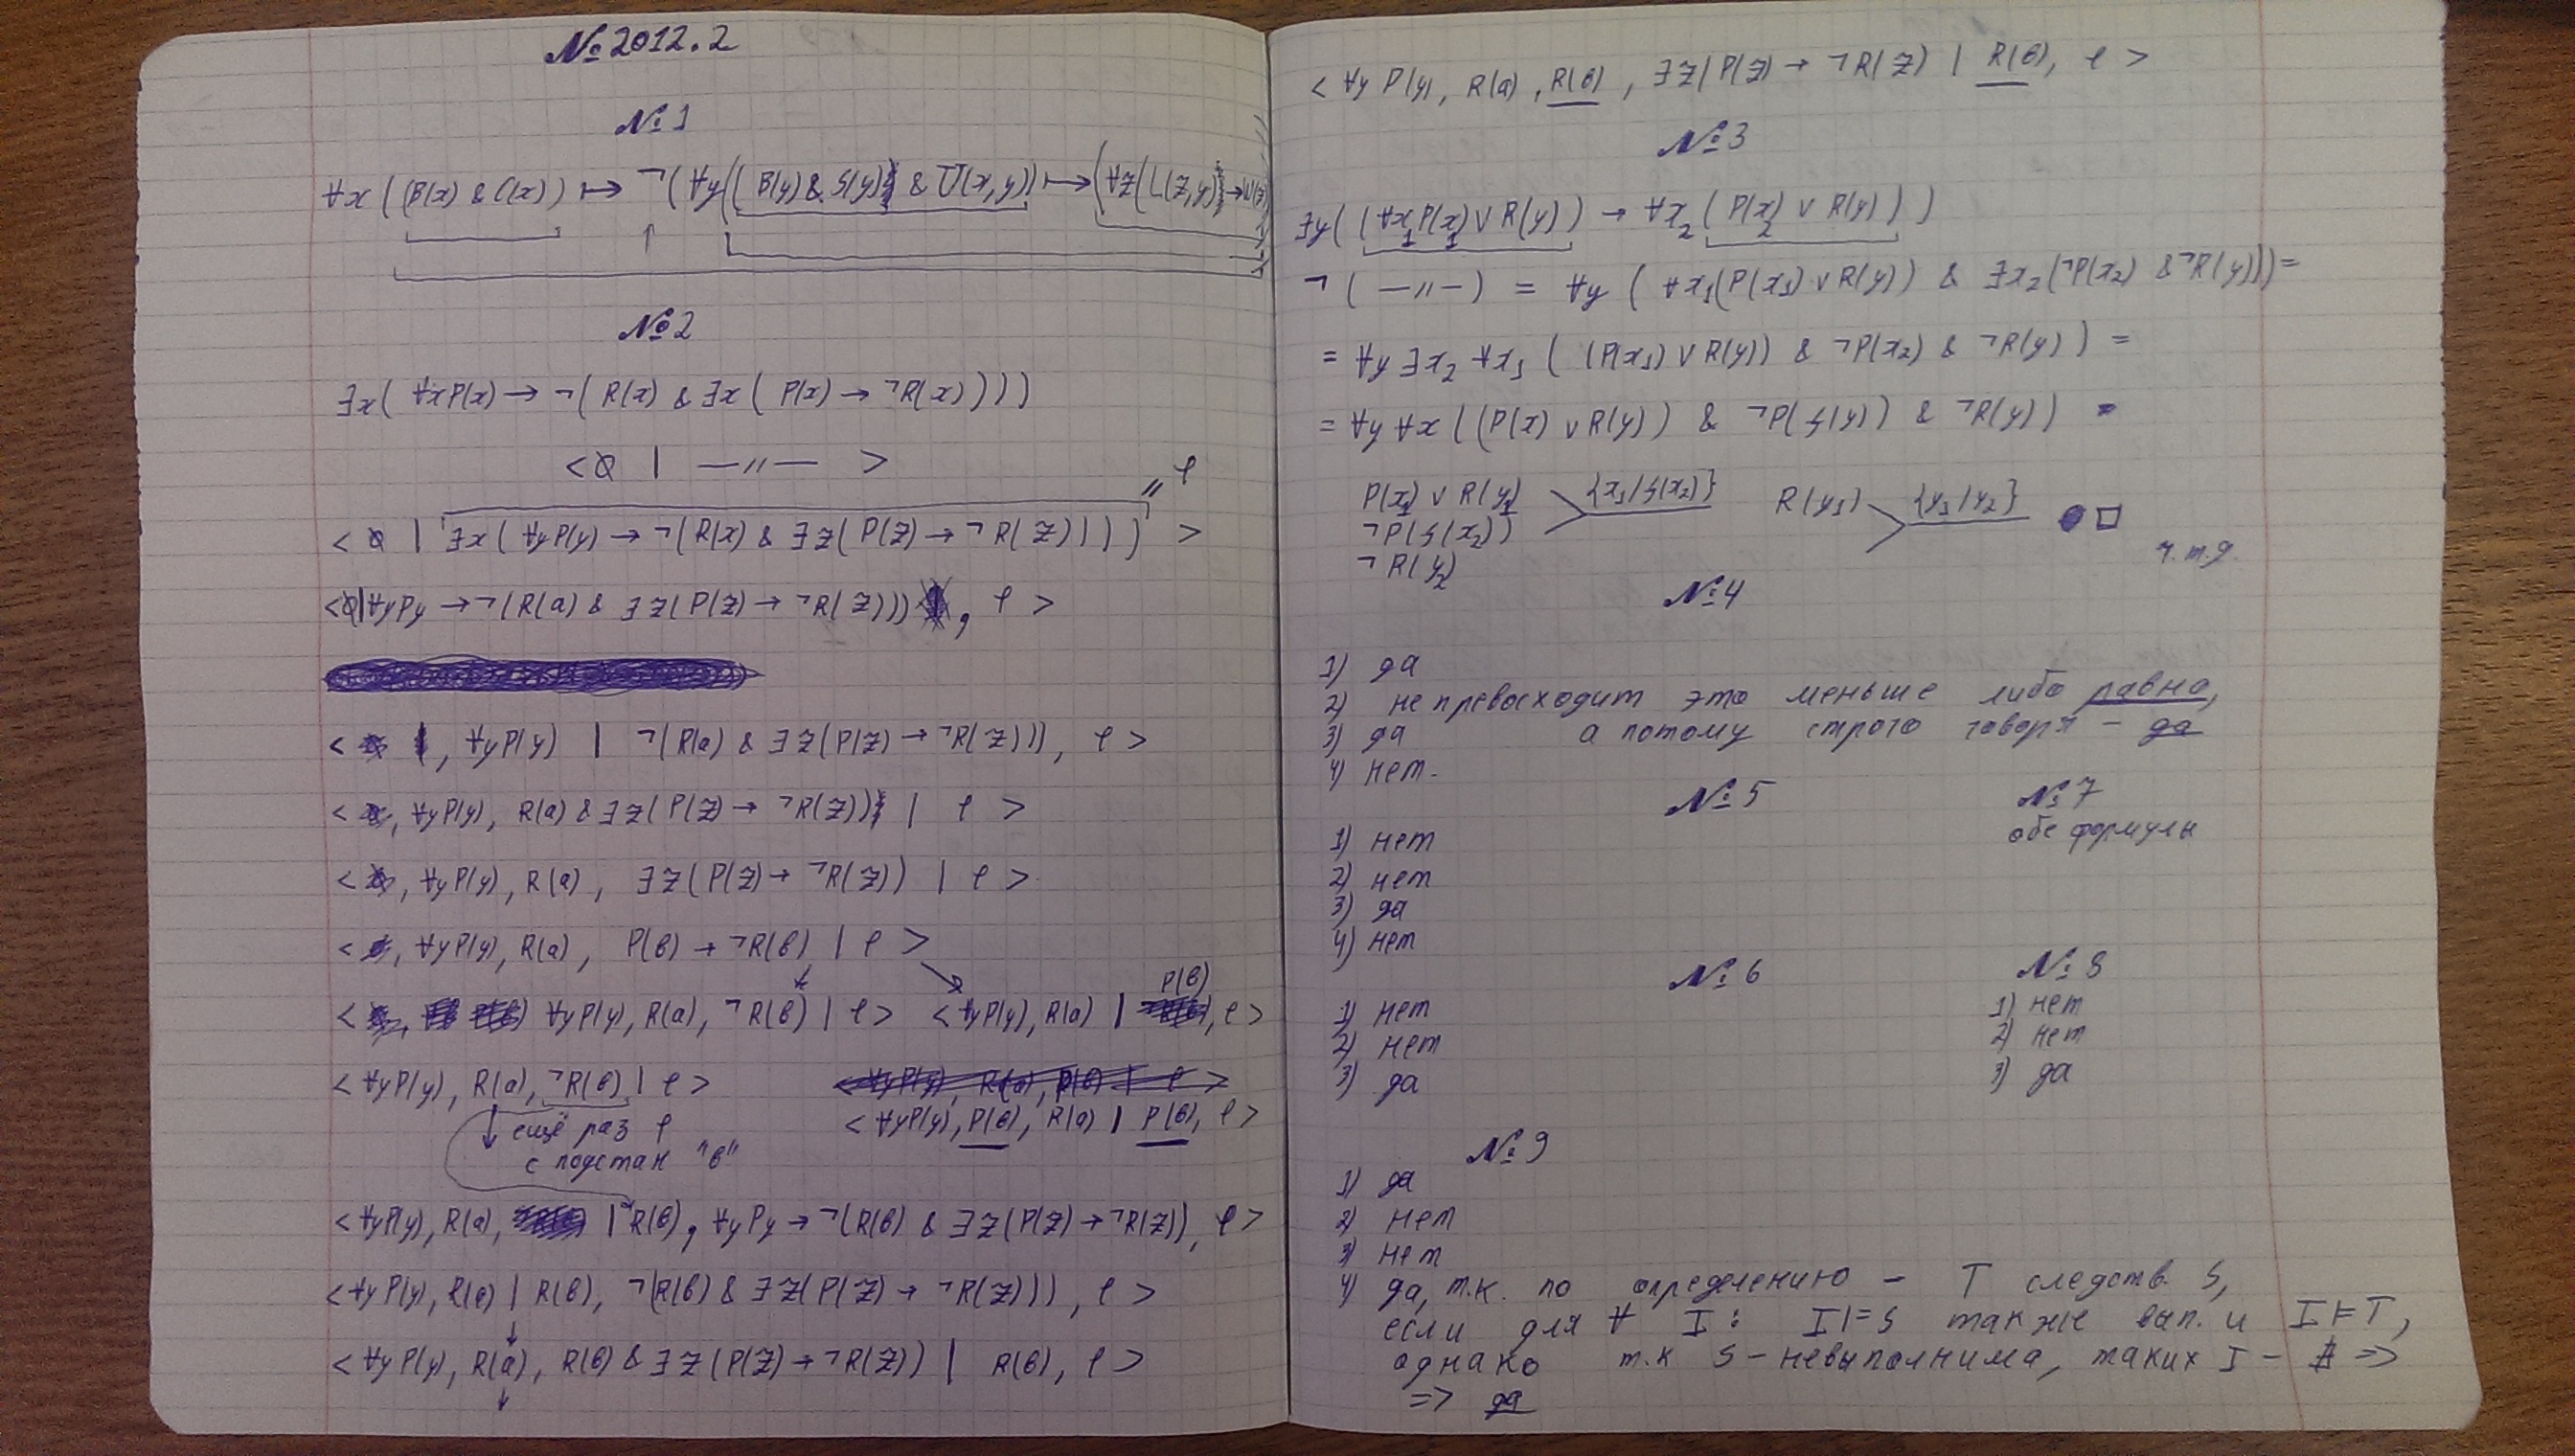 №2012.2
№1
∀x((B(x) & C(x)) ↦ ¬(∀y((B(y) & S(y) & U(x,y)) ↦ (∀z(L(z,y) →
№2
∃x(∀xP(x) → ¬(R(x) & ∃x(P(x) → ¬R(x))))
<∅ | —〃— >
〃 φ
<∅ | ∃x(∀yP(y) → ¬(R(x) & ∃z(P(z) → ¬R(z)))) >
<∅|∀yPy → ¬(R(a) & ∃z(P(z) → ¬R(z))), φ >
< , ∀yP(y) | ¬(R(a) & ∃z(P(z) → ¬R(z))), φ >
< , ∀yP(y), R(a) & ∃z(P(z) → ¬R(z)) | φ >
< , ∀yP(y), R(a), ∃z(P(z) → ¬R(z)) | φ >
< , ∀yP(y), R(a), P(в) → ¬R(в) | φ >
P(в)
< ∀yP(y), R(a), ¬R(в) | φ > <∀yP(y), R(a) | , φ >
<∀yP(y), R(a), ¬R(в) | φ > <∀yP(y), R(a), P(в) | φ >
ещё раз φ <∀yP(y), P(в), R(a) | P(в), φ >
с подстан "в"
<∀yP(y), R(a), | R(в), ∀yPy → ¬(R(в) & ∃z(P(z) → ¬R(z)), φ >
<∀yP(y), R(a) | R(в), ¬(R(в) & ∃z(P(z) → ¬R(z))), φ >
<∀yP(y), R(a), R(в) & ∃z(P(z) → ¬R(z)) | R(в), φ >
<∀y P(y), R(a), R(в), ∃z(P(z) → ¬R(z) | R(в), φ >
№3
∃y((∀x₁P(x₁) ∨ R(y)) → ∀x₂(P(x₂) ∨ R(y)))
¬(—〃—) = ∀y(∀x₁(P(x₁) ∨ R(y)) & ∃x₂(¬P(x₂) & ¬R(y))) =
= ∀y ∃x₂ ∀x₁((P(x₁) ∨ R(y)) & ¬P(x₂) & ¬R(y)) =
= ∀y ∀x((P(x) ∨ R(y)) & ¬P(f(y)) & ¬R(y))
P(x₁) ∨ R(y₁) {x₁/f(x₂)} R(y₁) {y₁/y₂} □
¬P(f(x₂))
¬R(y₂) ч.т.д.
№4
1) да
2) не превосходит это меньше либо равно,
3) да а потому строго говоря – да
4) нет.
№5 №7
1) нет обе формулы
2) нет
3) да
4) нет
№6 №8
1) нет 1) нет
2) нет 2) нет
3) да 3) да
№9
1) да
2) нет
3) нет
4) да, т.к. по определению – T следств. S,
если для ∀ I: I⊨S также вып. и I⊨T,
однако т.к S – невыполнима, таких I – ∄ =>
=> да